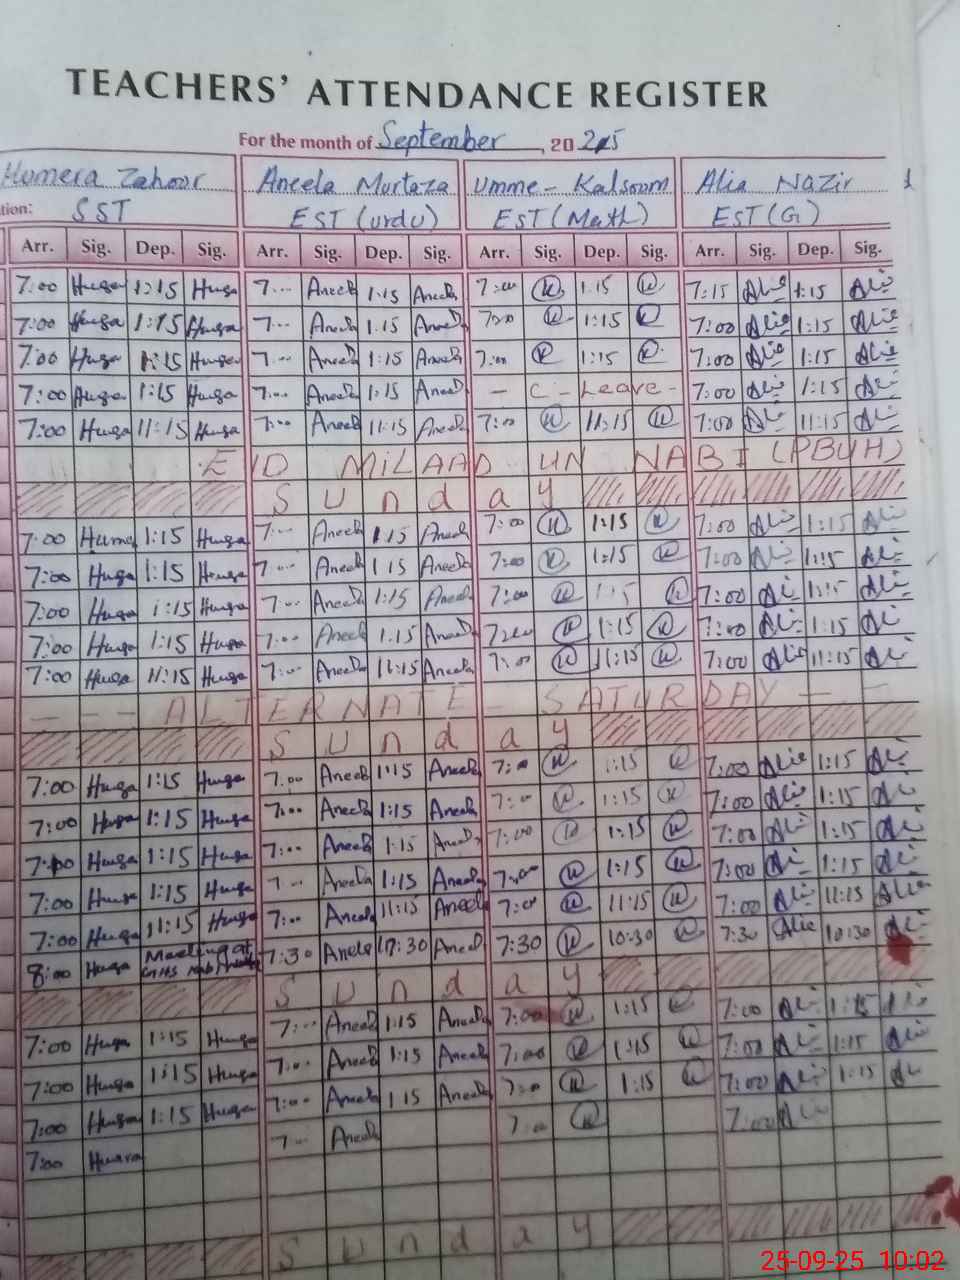 TEACHERS' ATTENDANCE REGISTER
For the month of September, 2025
Humera Zahoor Aneela Murtaza Umme-Kalsoom Alia Nazir
tion: SST EST (urdu) EST (Math) EST (G)
Arr. Sig. Dep. Sig. Arr. Sig. Dep. Sig. Arr. Sig. Dep. Sig. Arr. Sig. Dep. Sig.
7:00 Huga 1:15 Huga 7... Aneela 1:15 Aneela 7:00 1:15 7:15 Alia 1:15 Alia
7:00 Huga 1:15 Huga 7... Aneela 1:15 Aneela 7:00 1:15 7:00 Alia 1:15 Alia
7:00 Huga 1:15 Huga 7... Aneela 1:15 Aneela 7:00 1:15 7:00 Alia 1:15 Alia
7:00 Huga 1:15 Huga 7:00 Aneela 1:15 Aneela - C - Leave - 7:00 Ali 1:15 Ali
7:00 Huga 11:15 Huga 7:00 Aneela 11:15 Aneela 7:00 11:15 7:00 Ali 11:15 Ali
EID MILAAD UN NABI (PBUH)
Sunday
7:00 Huma 1:15 Huga 7... Aneela 1:15 Aneela 7:00 1:15 7:00 Ali 1:15 Ali
7:00 Huga 1:15 Huga 7... Aneela 1:15 Aneela 7:00 1:15 7:00 Ali 1:15 Ali
7:00 Huga 1:15 Huga 7... Aneela 1:15 Aneela 7:00 1:15 7:00 Ali 1:15 Ali
7:00 Huga 1:15 Huga 7:00 Aneela 1:15 Aneela 7:00 1:15 7:00 Ali 1:15 Ali
7:00 Huga 11:15 Huga 7:00 Aneela 11:15 Aneela 7:00 11:15 7:00 Alia 11:15 Ali
- - - ALTERNATE - SATURDAY - -
Sunday
7:00 Huga 1:15 Huga 7:00 Aneela 1:15 Aneela 7:00 1:15 7:00 Alia 1:15 Ali
7:00 Huga 1:15 Huga 7:00 Aneela 1:15 Aneela 7:00 1:15 7:00 Ali 1:15 Ali
7:00 Huga 1:15 Huga 7:00 Aneela 1:15 Aneela 7:00 1:15 7:00 Ali 1:15 Ali
7:00 Huga 1:15 Huga 7... Aneela 1:15 Aneela 7:00 1:15 7:00 Ali 1:15 Ali
7:00 Huga 11:15 Huga 7:00 Aneela 11:15 Aneela 7:00 11:15 7:00 Ali 11:15 Alia
8:00 Huga Meeting at GHS 7:30 Aneela 10:30 Aneela 7:30 10:30 7:30 Alia 10:30 Ali
Sunday
7:00 Huga 1:15 Huga 7:00 Aneela 1:15 Aneela 7:00 1:15 7:00 Ali 1:15 Ali
7:00 Huga 1:15 Huga 7:00 Aneela 1:15 Aneela 7:00 1:15 7:00 Ali 1:15 Ali
7:00 Huga 1:15 Huga 7:00 Aneela 1:15 Aneela 7:00 1:15 7:00 Ali 1:15 Ali
7:00 7... Aneela 7:00 7:00 Ali
Sunday
25-09-25 10:02